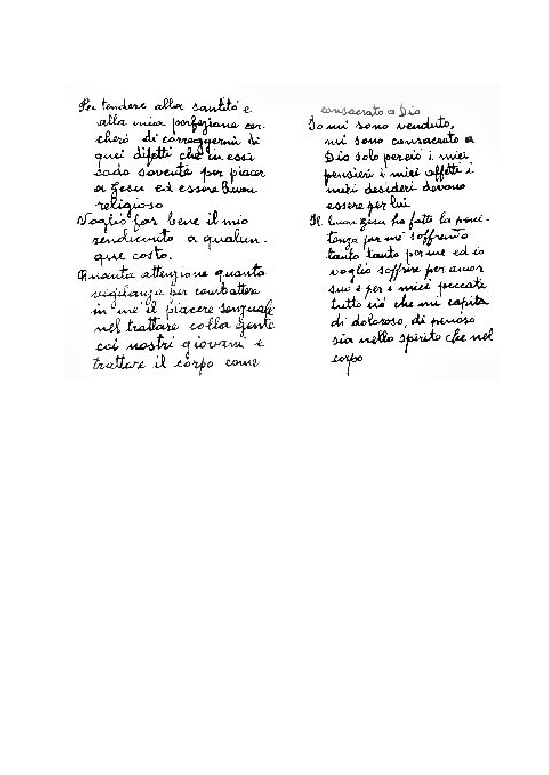 Per tendere alla santità e
alla mia perfezione cer-
cherò di correggermi di
quei difetti che in essi
cado sovente per piacer
a Gesù ed essere buon
religioso
Voglio far bene il mio
rendiconto a qualun-
que costo.
Quanta attenzione quanta
vigilanza per combattere
in me il piacere sensuale
nel trattare colla gente
coi nostri giovani e
trattare il corpo come
consacrato a Dio
Io mi sono venduto,
mi sono consacrato a
Dio solo perciò i miei
pensieri i miei affetti i
miei desideri devono
essere per lui
Il buon Gesù ha fatto la peni-
tenza per me soffrendo
tanto tanto per me ed io
voglio soffrire per amor
suo e per i miei peccati
tutto ciò che mi capita
di doloroso, di penoso
sia nello spirito che nel
corpo